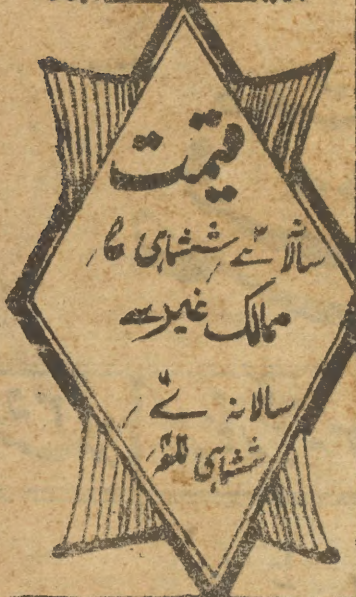 قیمت
سالانہ ششماہی
ممالک غیر سے
سالانہ
ششماہی